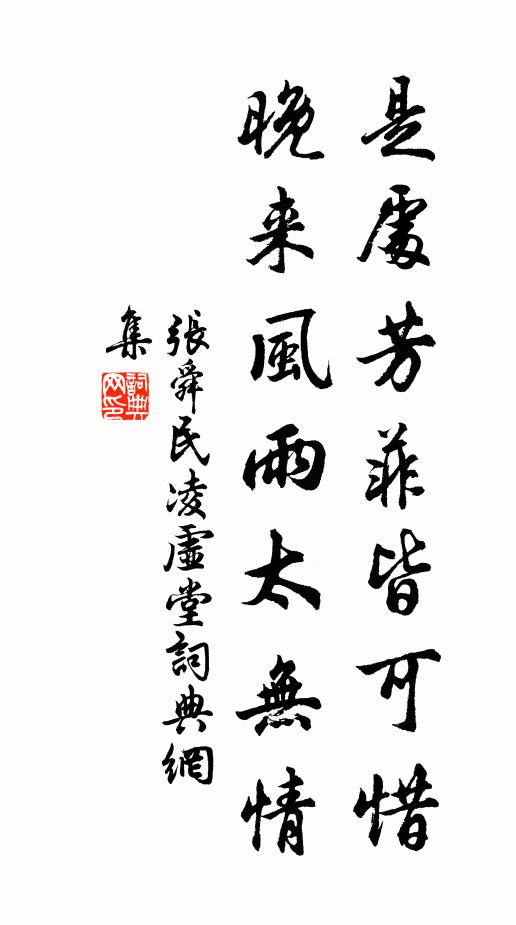 是處芳菲皆可惜
晚来風雨太無情
張舜民凌虛堂詞典網
集
詞典
网印